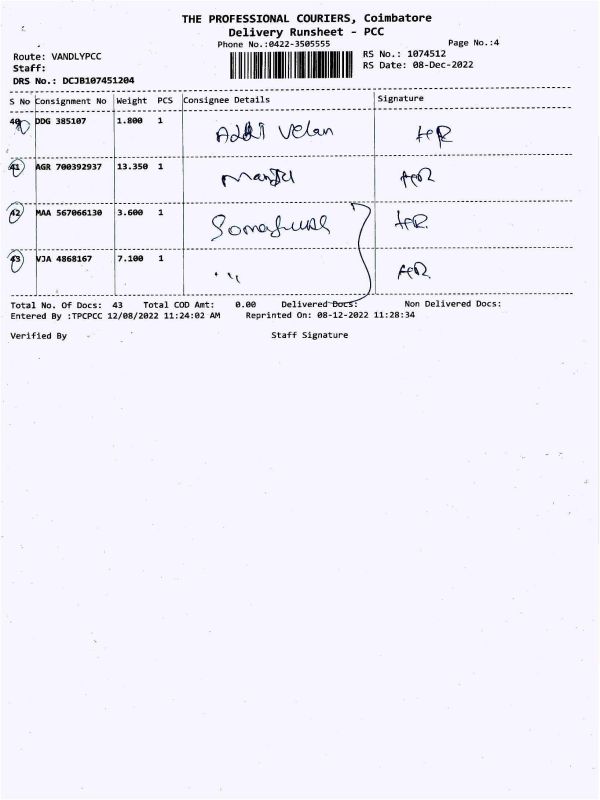 THE PROFESSIONAL COURIERS, Coimbatore
Delivery Runsheet - PCC
Phone No.:0422-3505555 Page No.:4
Route: VANDLYPCC RS No.: 1074512
Staff: RS Date: 08-Dec-2022
DRS No.: DCJB107451204
S No Consignment No Weight PCS Consignee Details Signature
40 DDG 385107 1.800 1 Velan
41 AGR 700392937 13.350 1
42 MAA 567066130 3.600 1
43 VJA 4868167 7.100 1
Total No. Of Docs: 43 Total COD Amt: 0.00 Delivered Docs: Non Delivered Docs:
Entered By :TPCPCC 12/08/2022 11:24:02 AM Reprinted On: 08-12-2022 11:28:34
Verified By Staff Signature